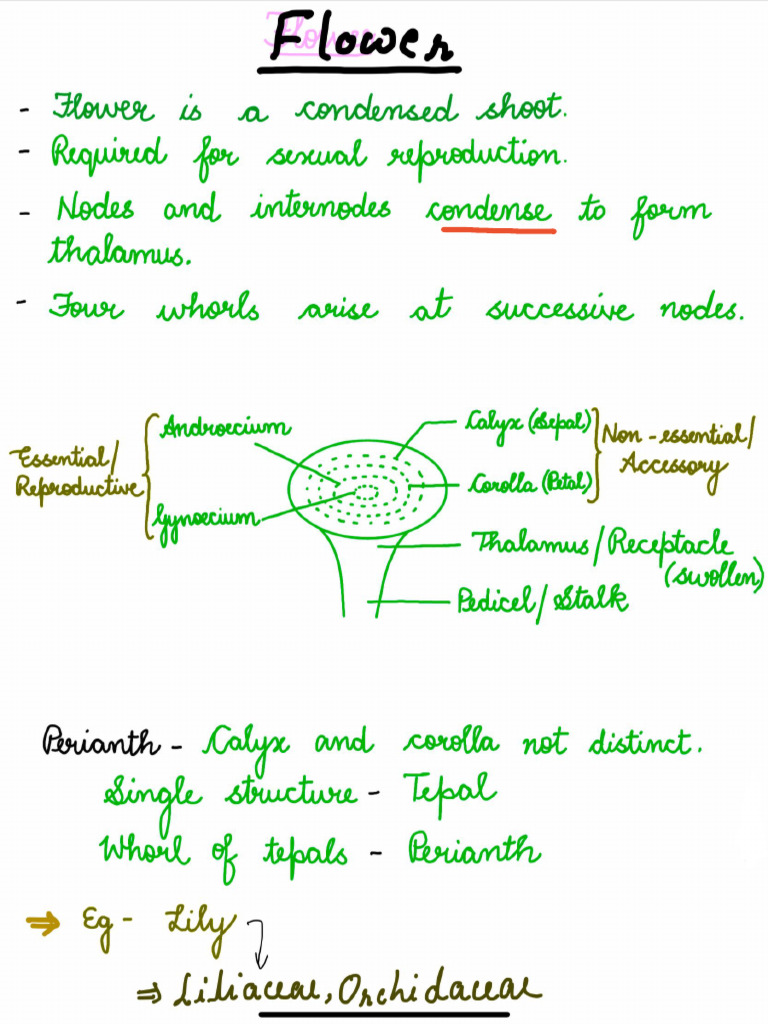 Flower
- Flower is a condensed shoot.
- Required for sexual reproduction.
- Nodes and internodes condense to form
thalamus.
- Four whorls arise at successive nodes.
Essential/
Reproductive
Androecium
Gynoecium
Calyx (Sepal)
Corolla (Petal)
Non-essential/
Accessory
Thalamus/Receptacle
(swollen)
Pedicel/Stalk
Perianth - Calyx and corolla not distinct.
Single structure - Tepal
Whorl of tepals - Perianth
⇒ Eg - Lily
⇒ Liliaceae, Orchidaceae